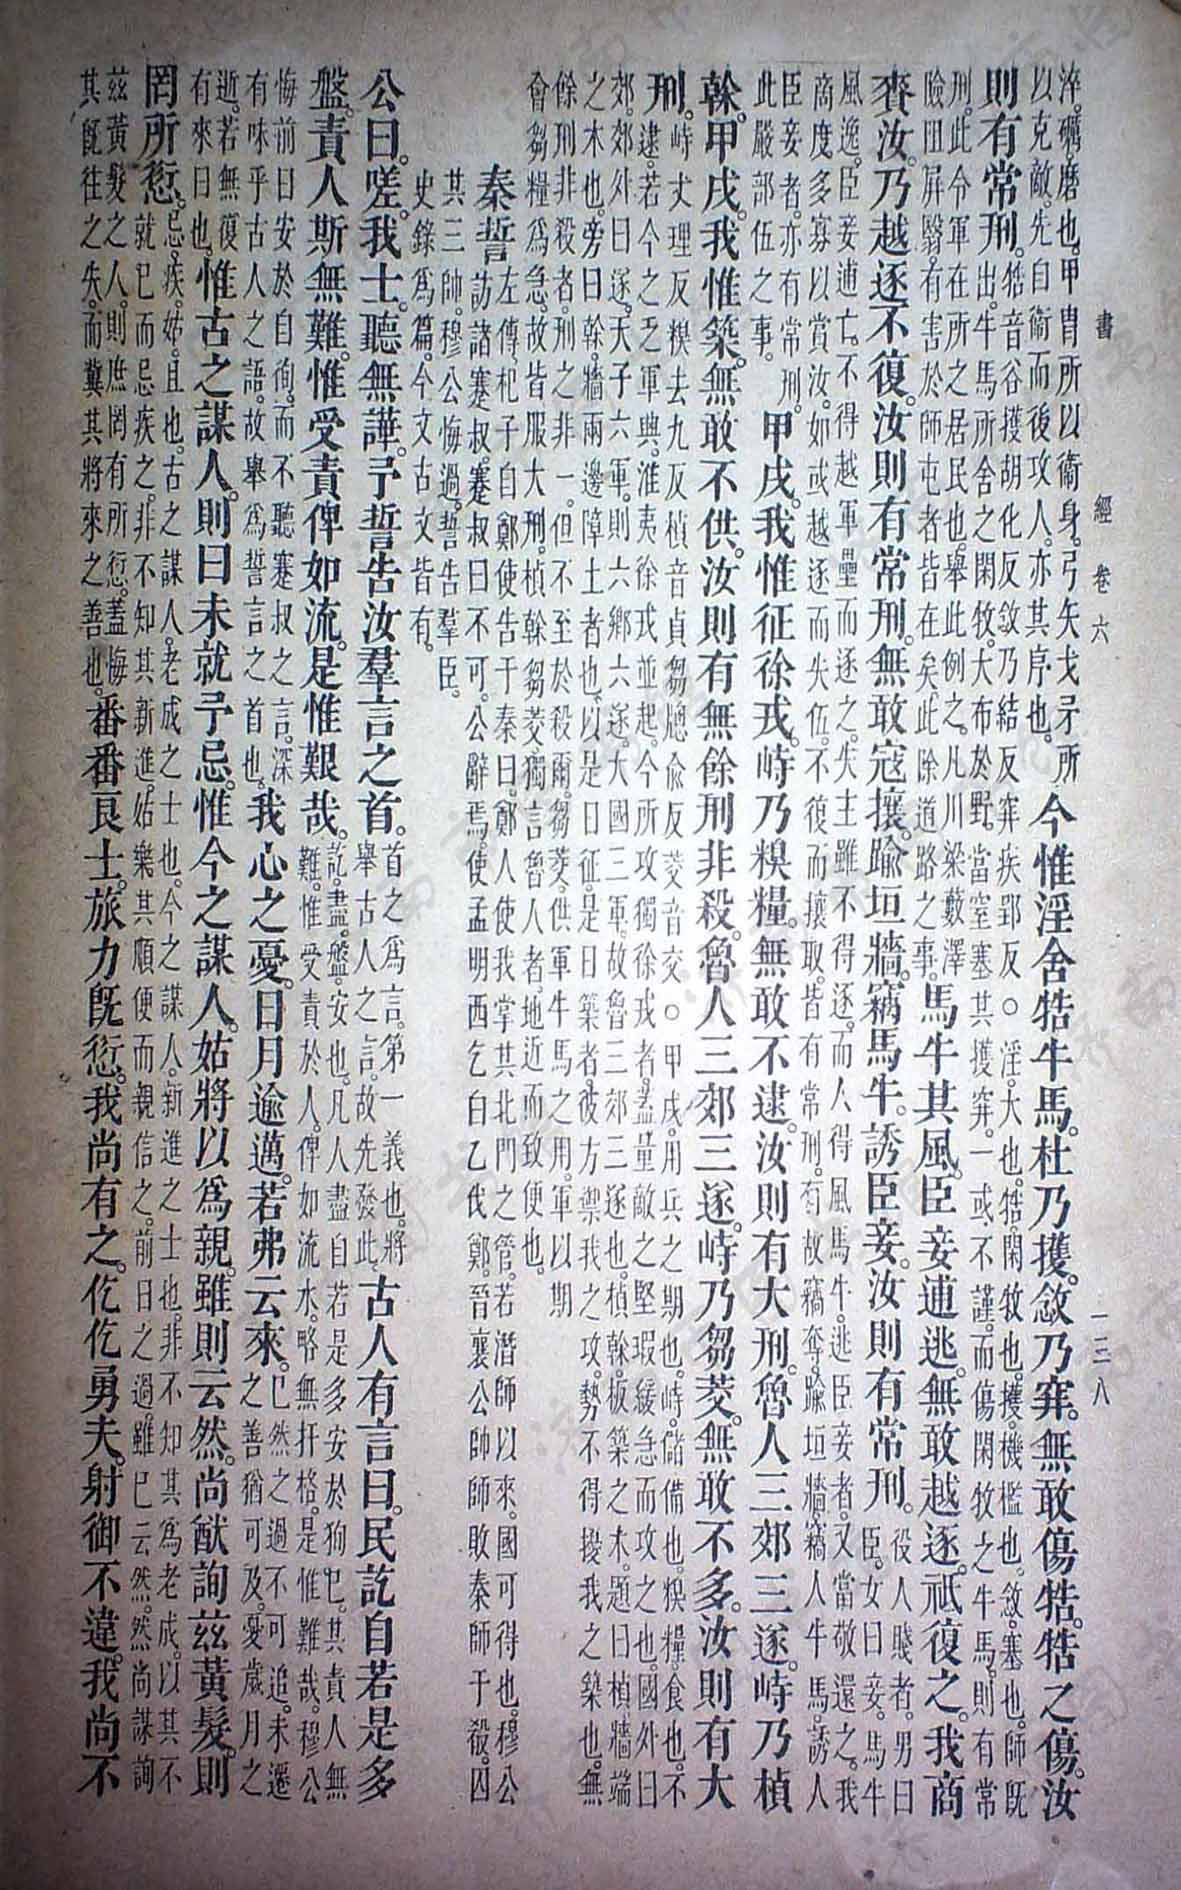 書經 卷六 一三八
淬。礪。磨也。甲冑所以衞身。弓矢戈矛所
以克敵。先自衞而後攻人。亦其序也。
今惟淫舍牿牛馬。杜乃擭。敜乃穽。無敢傷牿。牿之傷。汝
則有常刑。
牿音谷擭胡化反敜乃結反穽疾郢反○淫。大也。牿。閑牧也。擭。機檻也。敜。塞也。師旣
出。牛馬所舍之閑牧。大布於野。當窒塞其擭穽。一或不謹。而傷閑牧之牛馬。則有常
刑。此令軍在所之居民也。舉此例之。凡川梁藪澤
險阻屏翳。有害於師屯者。皆在矣。此除道路之事。
馬牛其風。臣妾逋逃。無敢越逐。祗復之。我商
賚汝。乃越逐不復。汝則有常刑。無敢寇攘。踰垣牆。竊馬牛。誘臣妾。汝則有常刑。
役人賤者。男曰
臣。女曰妾。馬牛
風逸。臣妾逋亡。不得越軍壘而逐之。失主雖不得逐。而人得風馬牛。逃臣妾者。又當敬還之。我
商度多寡以賞汝。如或越逐而失伍。不復而攘取。皆有常刑。有故竊奪。踰垣牆。竊人牛馬。誘人
臣妾者。亦有常刑。
此嚴部伍之事。
甲戌。我惟征徐戎。峙乃糗糧。無敢不逮。汝則有大刑。魯人三郊三遂。峙乃楨
榦。甲戌。我惟築。無敢不供。汝則有無餘刑非殺。魯人三郊三遂。峙乃芻茭。無敢不多。汝則有大
刑。
峙丈理反糗去九反楨音貞芻窻兪反茭音交○甲戌。用兵之期也。峙。儲備也。糗糧。食也。不
逮。若今之乏軍興。淮夷徐戎並起。今所攻獨徐戎者。蓋量敵之堅瑕緩急而攻之也。國外曰
郊。郊外曰遂。天子六軍。則六鄉六遂。大國三軍。故魯三郊三遂也。楨榦。板築之木。題曰楨。牆端
之木也。旁曰榦。牆兩邊障土者也。以是日征。是日築者。彼方禦我之攻。勢不得擾我之築也。無
餘刑非殺者。刑之非一。但不至於殺爾。芻茭。供軍牛馬之用。軍以期
會芻糧爲急。故皆服大刑。楨榦芻茭。獨言魯人者。地近而致便也。
秦誓
左傳。杞子自鄭使告于秦曰。鄭人使我掌其北門之管。若潛師以來。國可得也。穆公
訪諸蹇叔。蹇叔曰不可。公辭焉。使孟明西乞白乙伐鄭。晉襄公帥師敗秦師于殽。囚
其三帥。穆公悔過。誓告羣臣。
史錄爲篇。今文古文皆有。
公曰。嗟。我士。聽無譁。予誓告汝羣言之首。
首之爲言。第一義也。將
舉古人之言。故先發此。
古人有言曰。民訖自若是多
盤。責人斯無難。惟受責俾如流。是惟艱哉。
訖。盡。盤。安也。凡人盡自若是多安於徇已。其責人無
難。惟受責於人。俾如流水。略無扞格。是惟難哉。穆公
悔前日安於自徇。而不聽蹇叔之言。深
有味乎古人之語。故舉爲誓言之首也。
我心之憂。日月逾邁。若弗云來。
已然之過不可追。未遷
之善猶可及。憂歲月之
逝。若無復
有來日也。
惟古之謀人。則曰未就予忌。惟今之謀人。姑將以爲親。雖則云然。尚猷詢茲黃髮。則
罔所愆。
忌。疾。姑。且也。古之謀人。老成之士也。今之謀人。新進之士也。非不知其爲老成。以其不
就已而忌疾之。非不知其新進。姑樂其順便而親信之。前日之過。雖已云然。然尚謀詢
茲黃髮之人。則庶罔有所愆。蓋悔
其旣往之失。而冀其將來之善也。
番番良士。旅力旣愆。我尚有之。仡仡勇夫。射御不違。我尚不